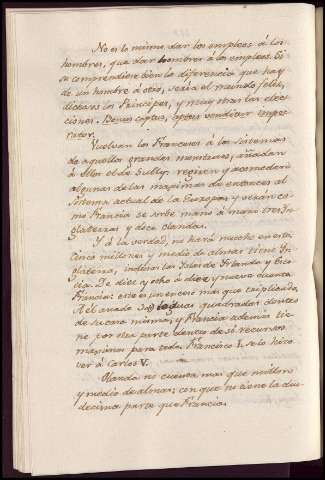 No es lo mismo dar los empleos á los
hombres, que dar hombres á los empleos. Si
se comprendiese bien la diferencia que hay
de un hombre á otro, sería el mundo feliz,
dichosos los Principes, y muy otras las elec-
ciones. Bonus captus, aptus venditur impe-
rator.
Vuelvan los Franceses á los sistemas
de aquellos grandes ministros, añadan
á ellos el de Sully, regulen y acomoden
algunas de las maximas de entonces al
sistema actual de la Europa, y verán co-
mo Francia se sorbe mano á mano tres In-
glaterras y doce Olandas.
Y á la verdad, no hará mucho en esto
Cinco millones y medio de almas tiene In-
glaterra, inclusas las Islas de Irlanda y Esco-
cia. De diez y ocho á diez y nueve cuenta
Francia: este es un exceso más que triplicado.
A el anade 30 leguas quadradas dentro
de su casa misma; y Francia ademas tie-
ne por otra parte dentro de sí recursos
maximos para todo. Francisco I. se lo hizo
ver á Carlos V.
Olanda no cuenta mas que millon
y medio de almas; con que no tiene la duo-
decima parte que Francia.